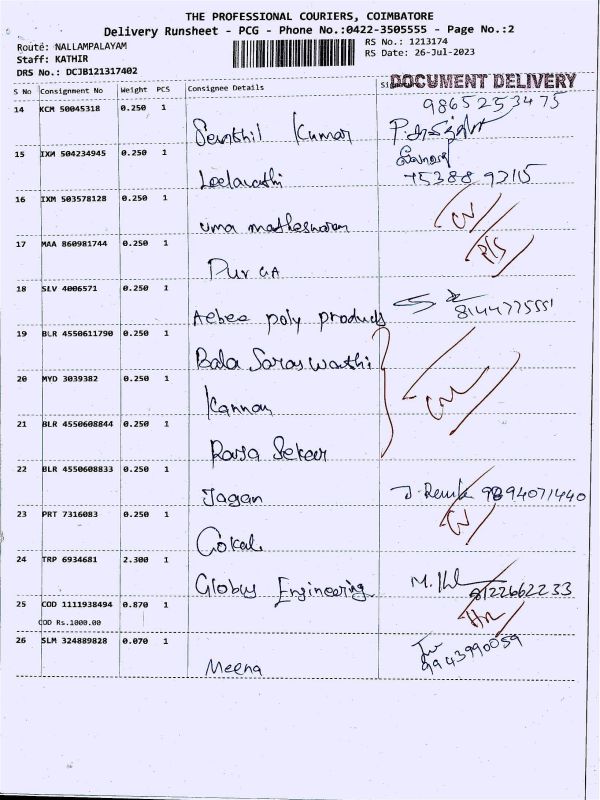 THE PROFESSIONAL COURIERS, COIMBATORE
Delivery Runsheet - PCG - Phone No.:0422-3505555 - Page No.:2
Route: NALLAMPALAYAM RS No.: 1213174
Staff: KATHIR RS Date: 26-Jul-2023
DRS No.: DCJB121317402
DOCUMENT DELIVERY
S No Consignment No Weight PCS Consignee Details
14 KCM 50045318 0.250 1 9865253475
Senthil Kumar
15 IXM 504234945 0.250 1
Leelavathi 75388 97115
16 IXM 503578128 0.250 1
uma matheswaran
17 MAA 860981744 0.250 1
DurGA
18 SLV 4006571 0.250 1
Aebee poly products 8144775551
19 BLR 4550611790 0.250 1
Bala Saraswathi
20 MYD 3039382 0.250 1
Kannan
21 BLR 4550608844 0.250 1
Raja Sekar
22 BLR 4550608833 0.250 1
Jagan J. Renuka 9894071440
23 PRT 7316083 0.250 1
Gokal
24 TRP 6934681 2.300 1
Globus Engineering 8122662233
25 COD 1111938494 0.870 1
COD Rs.1000.00
26 SLM 324889828 0.070 1 9943990059
Meena